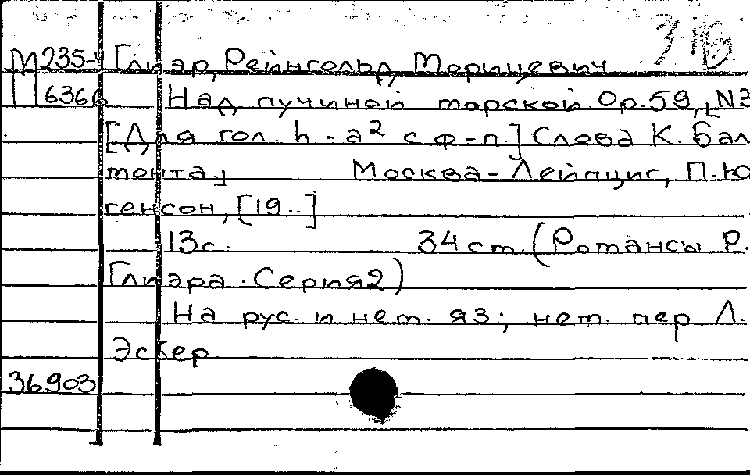 М235-4 Глиэр, Рейнгольд Морицевич
П636 Над пучиной морской. Op. 59, N3
[Для гол. h-a² с ф-п.] Слова К. Баль
монта. Москва-Лейпциг, П. Ю
генсон, [19..]
13с. 34 см (Романсы Р.
Глиэра. Серия 2)
На рус. и нем. яз; нем. пер. Л.
Эскер
36903